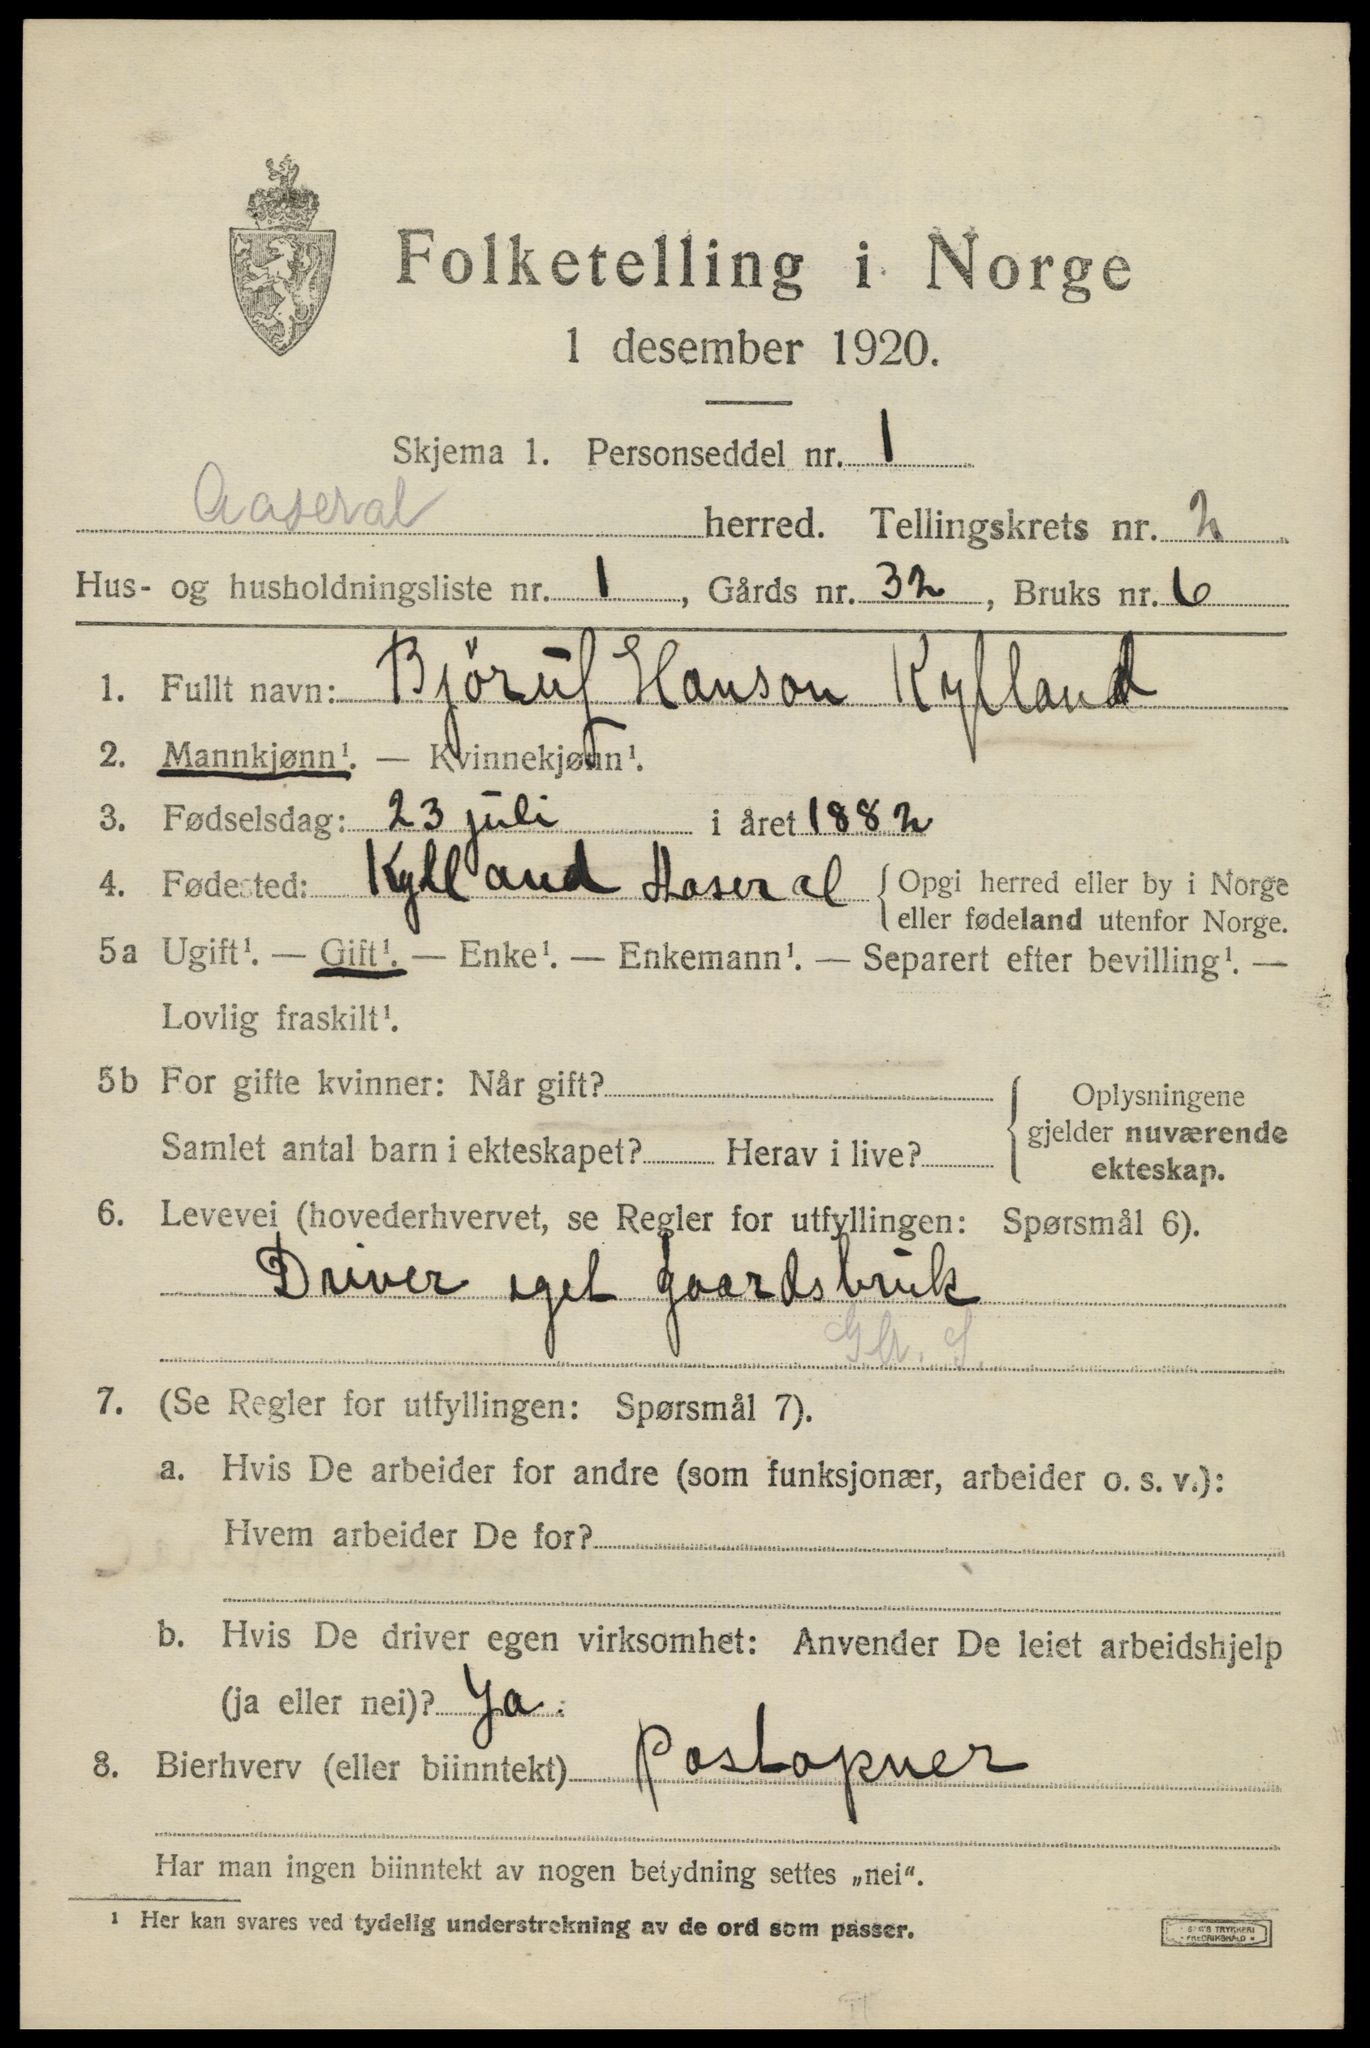 Folketelling i Norge
1 desember 1920.
Skjema 1. Personseddel nr. 1
Aaseral herred. Tellingskrets nr. 2
Hus- og husholdningsliste nr. 1, Gårds nr. 32, Bruks nr. 6
1. Fullt navn: Björuf Hanson Kylland
2. Mannkjønn¹. — Kvinnekjønn¹.
3. Fødselsdag: 23 juli i året 1882
4. Fødested: Kylland Aaseral {Opgi herred eller by i Norge
eller fødeland utenfor Norge.
5a Ugift¹. — Gift¹. — Enke¹. — Enkemann¹. — Separert efter bevilling¹. —
Lovlig fraskilt¹.
5b For gifte kvinner: Når gift? { Oplysningene
gjelder nuværende
ekteskap.
Samlet antal barn i ekteskapet? Herav i live?
6. Levevei (hovederhvervet, se Regler for utfyllingen: Spørsmål 6).
Driver eget gaardsbruk
G.br. S.
7. (Se Regler for utfyllingen: Spørsmål 7).
a. Hvis De arbeider for andre (som funksjonær, arbeider o. s. v.):
Hvem arbeider De for?
b. Hvis De driver egen virksomhet: Anvender De leiet arbeidshjelp
(ja eller nei)? Ja.
8. Bierhverv (eller biinntekt) Postopner
Har man ingen biinntekt av nogen betydning settes „nei“.
¹ Her kan svares ved tydelig understrekning av de ord som passer.
TRYKKERI
FREDRIKSHALD